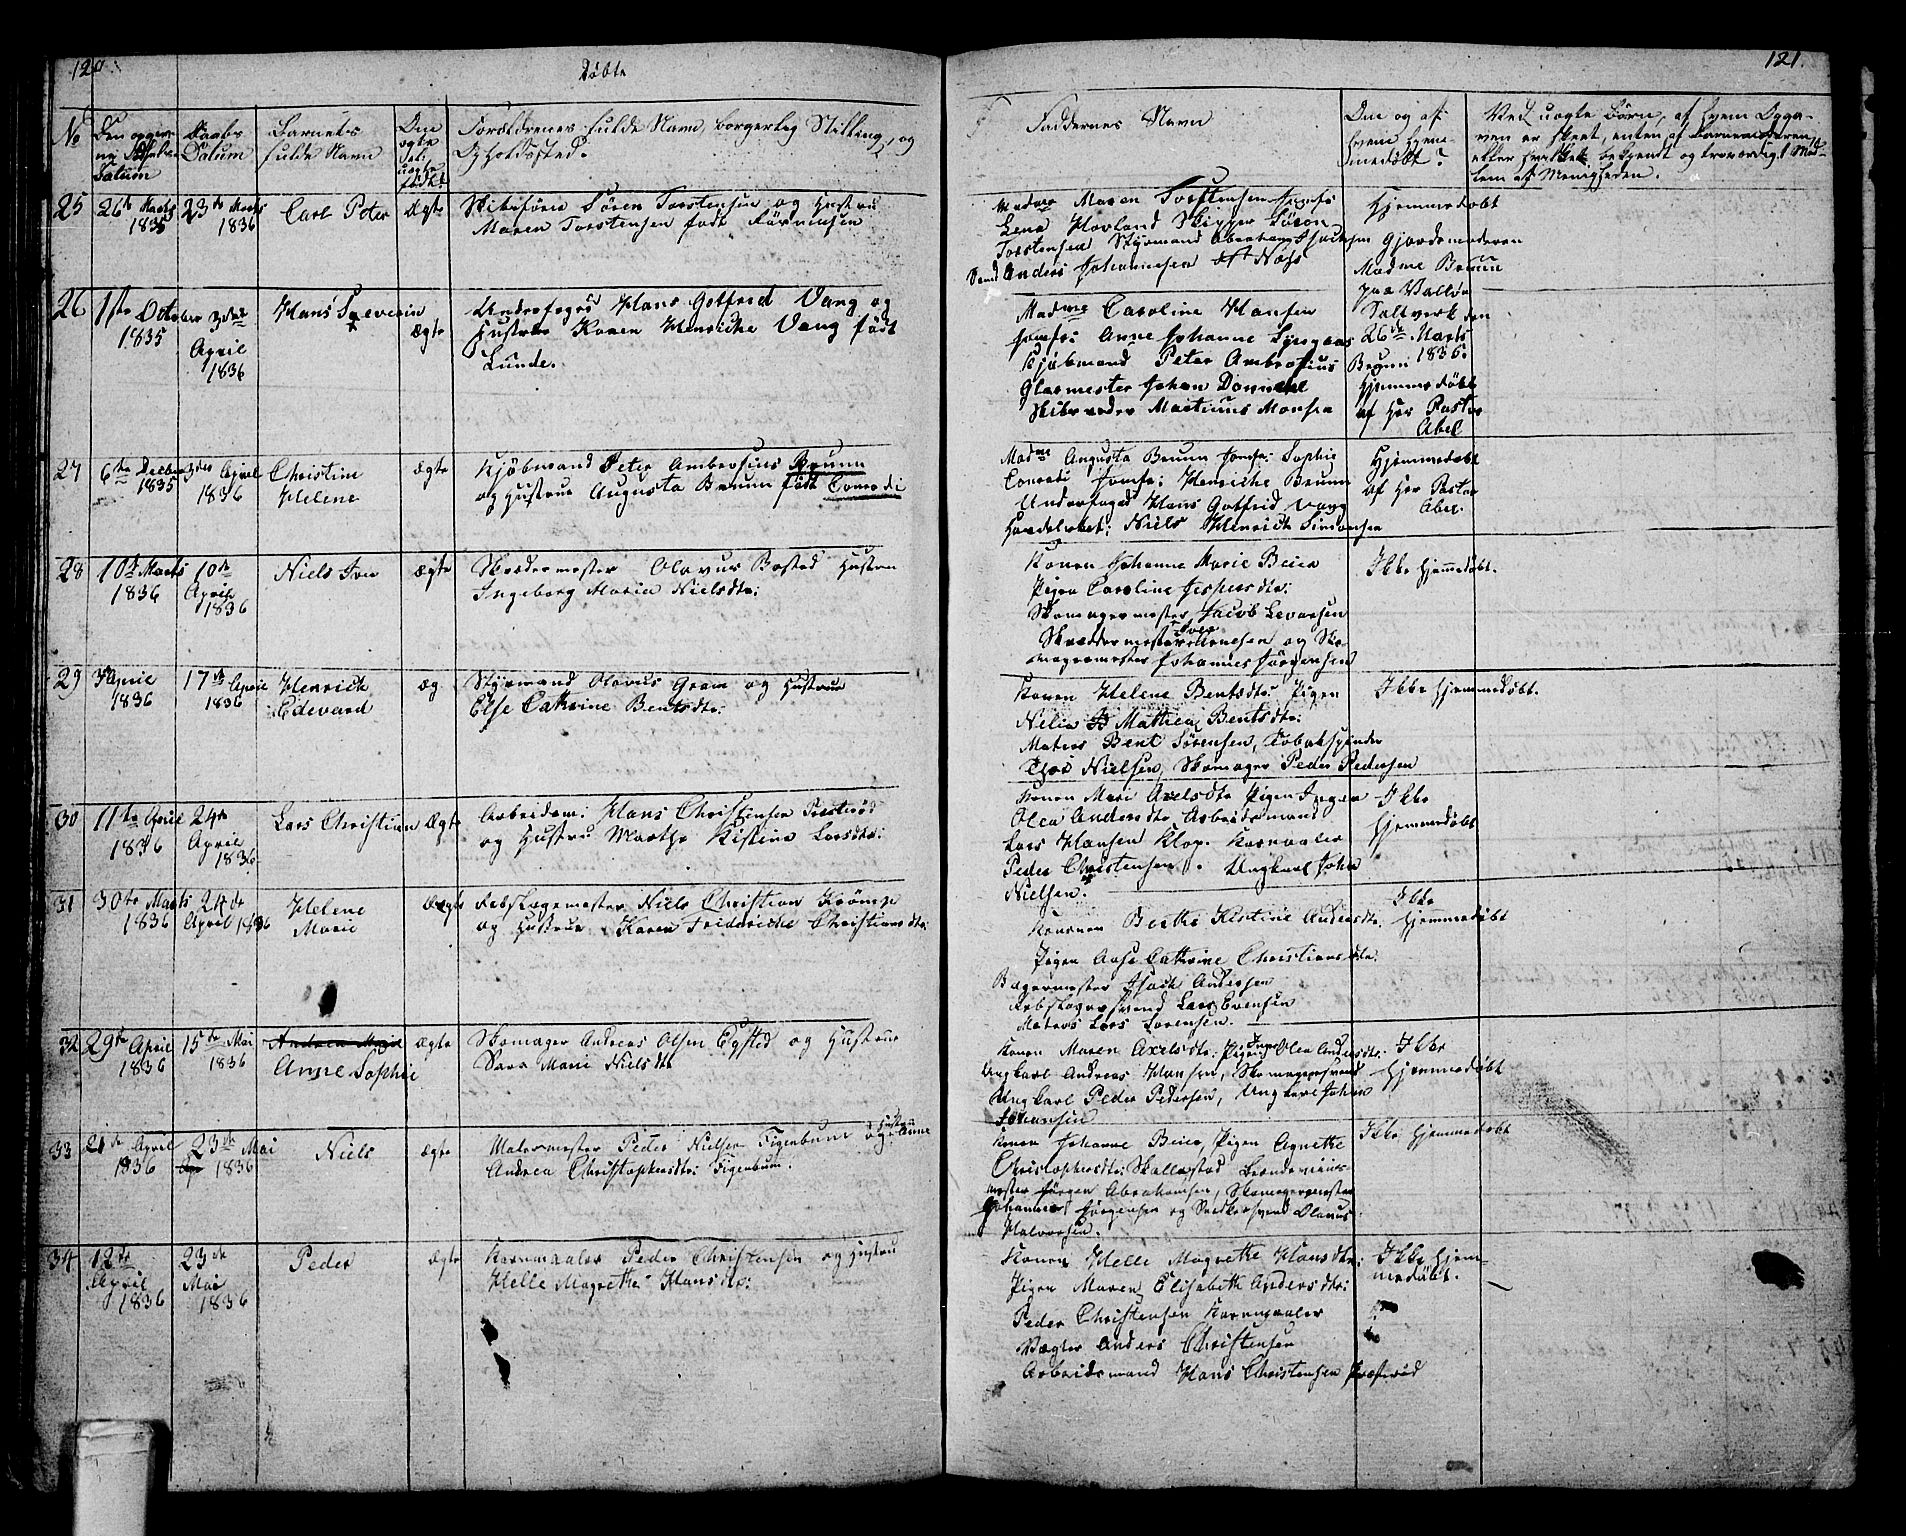 120.
Døbte
No
Den opgivne Fødsels Datum
Daabs Datum
Barnets fulde Navn
Om ægte eller uægte født?
Forældrenes fulde Navn, borgerlig Stilling, og
Opholdssted.
25
26de Marts
1835
23de Marts
1836
Carl Peter
Ægte
Skibsfører Søren Torstensen og Hustru
Maren Torstensen født Sørensen
26
1ste October
1835
3die
April
1836
Hans Severin
ægte
Underfoged Hans Gotfred Vang og
Hustrue Karen Henricke Vang født
Lunde.
27
6te Decber
1835
3die April
1836
Christine
Helene
ægte
Kjøbmand Peter Ambrosius Bruun
og Hustrue Augusta Bruun født Conradi
28
10de Marts
1836
10de
April
1836
Niels Iver
ægte
Skrædermester Olavus Bosted Hustrue
Ingeborg Maria Nielsdtr:
29
April
1836
17de April
1836
Henrich
Edevard
æg
Styrmand Olavus Gram og Hustrue
Else Cathrine Bentsdtr:
30
11te April
1836
24de
April
1836
Lars Christian
Ægte
Arbeidsm: Hans Christensen
og Hustru Marthe Kistine Larsdtr:
31
30te Marts
1836
24de
April 1836
Helene
Marie
Ægte
Rebslagermester Niels Christian Krömp
og Hustrue Karen Friderické Christiansdtr:
32
29de April
1836
15de Mai
1836
Anne Sophie
Ægte
Skomager Andreas Olsen Eysted og Hustrue
Sara Marie Nielsdtr
33
21de April
1836
23de Mai
1836
Niels
ægte
Malermester Peder Nielsen Figenbaum og Hustrue Anne
Andrea Christophersdtr: Figenbum.
34
12te
April
1836
23de
Mai
1836
Peder
ægte
Kornmaaler Peder Christensen og Hustru
Helle Magrethe Hansdtr:
121.
Faddernes Navn
Om og af
hvem hjemmedøbt?
Ved uægte Børn, af hvem Opgaven
er skeet, enten af Barnemoderen,
eller hvilket bekjendt og troværdigt Medlem
af Menigheden.
Madme Maren Torstensen Jomfr
Lena Hovland Skipper Søren
Torstensen Styrmand Abraham Isachsen
Anders Johannesen af Næss
Hjemmedøbt
Gjordemoderen
Madme Bruun
paa Valløe
Saltverk den
26de Marts
1835.
Madme Caroline Hansen
Jomfr: Anne Johanne
Kjøbmand Peter Ambrosius Bruun
Glarmester Johan
Skibsreder Martinus Monsen
Hjemmedøbt
af Her Pastor
Abel
Madme Augusta Bruun Jomfr: Sophie
Conradi Jomfr: Henricke Bruun
Underfoged Hans Gotfrid Vang
Handelsbet: Niels Henrich Simonsen
Hjemmedøbt
af Her Pastor
Abel.
Konen Johanne Marie Beier
Pigen Caroline Jespersdtr:
Skomagermester Jacob Levorsen
Skræddermester Iver og Skomagermester
Johannes Jørgensen
Ikke Hjemmedøbt.
Konen Helene Bentsdtr: Pigen
Nelia Mathea Bentsdtr:
Matros Bent Sørensen, Tobakspinder
Nielsen, Skomager Peder Pedersen
Ikke Hjemmedøbt.
Konen Mari Axelsdtr Pigen Inger
Olea Andersdtr Arbeidsmand
Lars Hansen Klop. Kornmaaler
Peder Christensen. Ungkarl John
Nielsen.
Ikke
Hjemmedøbt
Konen Berthe Kistine Andersdtr.
Pigen Anne Cathrine Christiansdtr.
Bagermester Isach Andersen
Rebslagersvend Lars Evensen
Matros Lars Sørensen.
Ikke
Hjemmedøbt
Konen Maren Axelsdtr: Pigen Inger Olea Andersdtr:
Ungkarl Andreas Hansen, Skomagersvend
Ungkarl Peder Pedersen, Ungkarl Johan
Johansen
Ikke
Hjemmedøbt
Konen Johanne Beier, Pigen Agnethe
Christophersdtr: Skallestad
Jørgen Abrahamsen, Skomagermester
Johannes Jørgensen og Snedkersvend Olavus
Halvorsen.
Ikke Hjemmedøbt
Konen Helle Magrethe Hansdtr:
Pigen Maren Elisabeth Andersdtr:
Peder Christensen Kornmaaler
Vægter Anders Christensen
Arbeidsmand Hans Christensen
Ikke Hjemmedøbt.